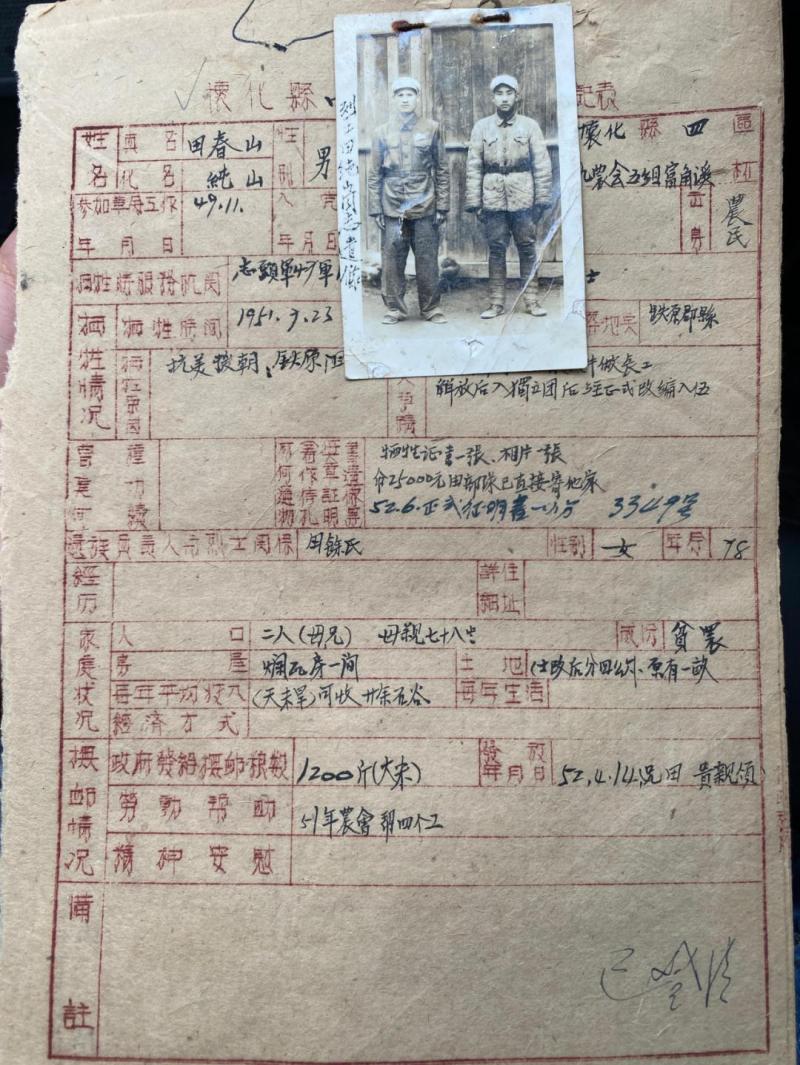 懷化縣
記表
姓名 真名 田春山 性別 男 懷化縣四區
化名 純山 九農會五組富角溪 村
參加革命工作年月日 49.11. 入党年月日 出身 農民
烈士田純山同志遺像
犧牲時服務机関 志願軍47軍 士
犧牲情況 犧牲時间 1951.9.23 鉄原郡縣
犧牲原因 抗美援朝、鉄原 件做長工
解放后入獨立团后 正式改編入伍
曾 種功績 犧牲证書一張、相片一張
25000元由部隊已直接寄他家
52.6.正式证明書一份 3349号
遺族負責人与烈士関係 田餘氏 性别 女 年令 78
經历 詳細住址
家庭狀況 人口 二人(母兄) 母親七十八岁 成份 貧農
房屋 爛瓦房一间 土地 (土改后分四公斤、原有一畝
每年平均收入 (天未旱)可收廿余石谷 每年生活
經濟方式
撫卹情況 政府發給撫卹粮数 1200斤(大米) 發放年月日 52.4.14 兄田 貴親領
勞動帮助 51年農會 帮四个工
精神安慰
備註 已 清